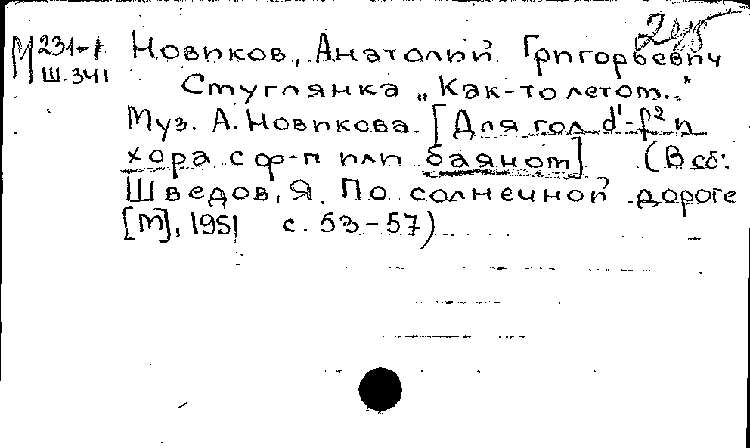 М 231-1 Новиков, Анатолий Григорьевич
Ш.341 Смуглянка „Как-то летом..."
Муз. А. Новикова. [Для гол d'-f² и
хора с ф-п или баяном] (В сб:
Шведов, Я. По солнечной дороге
[М], 1951 с. 53-57)